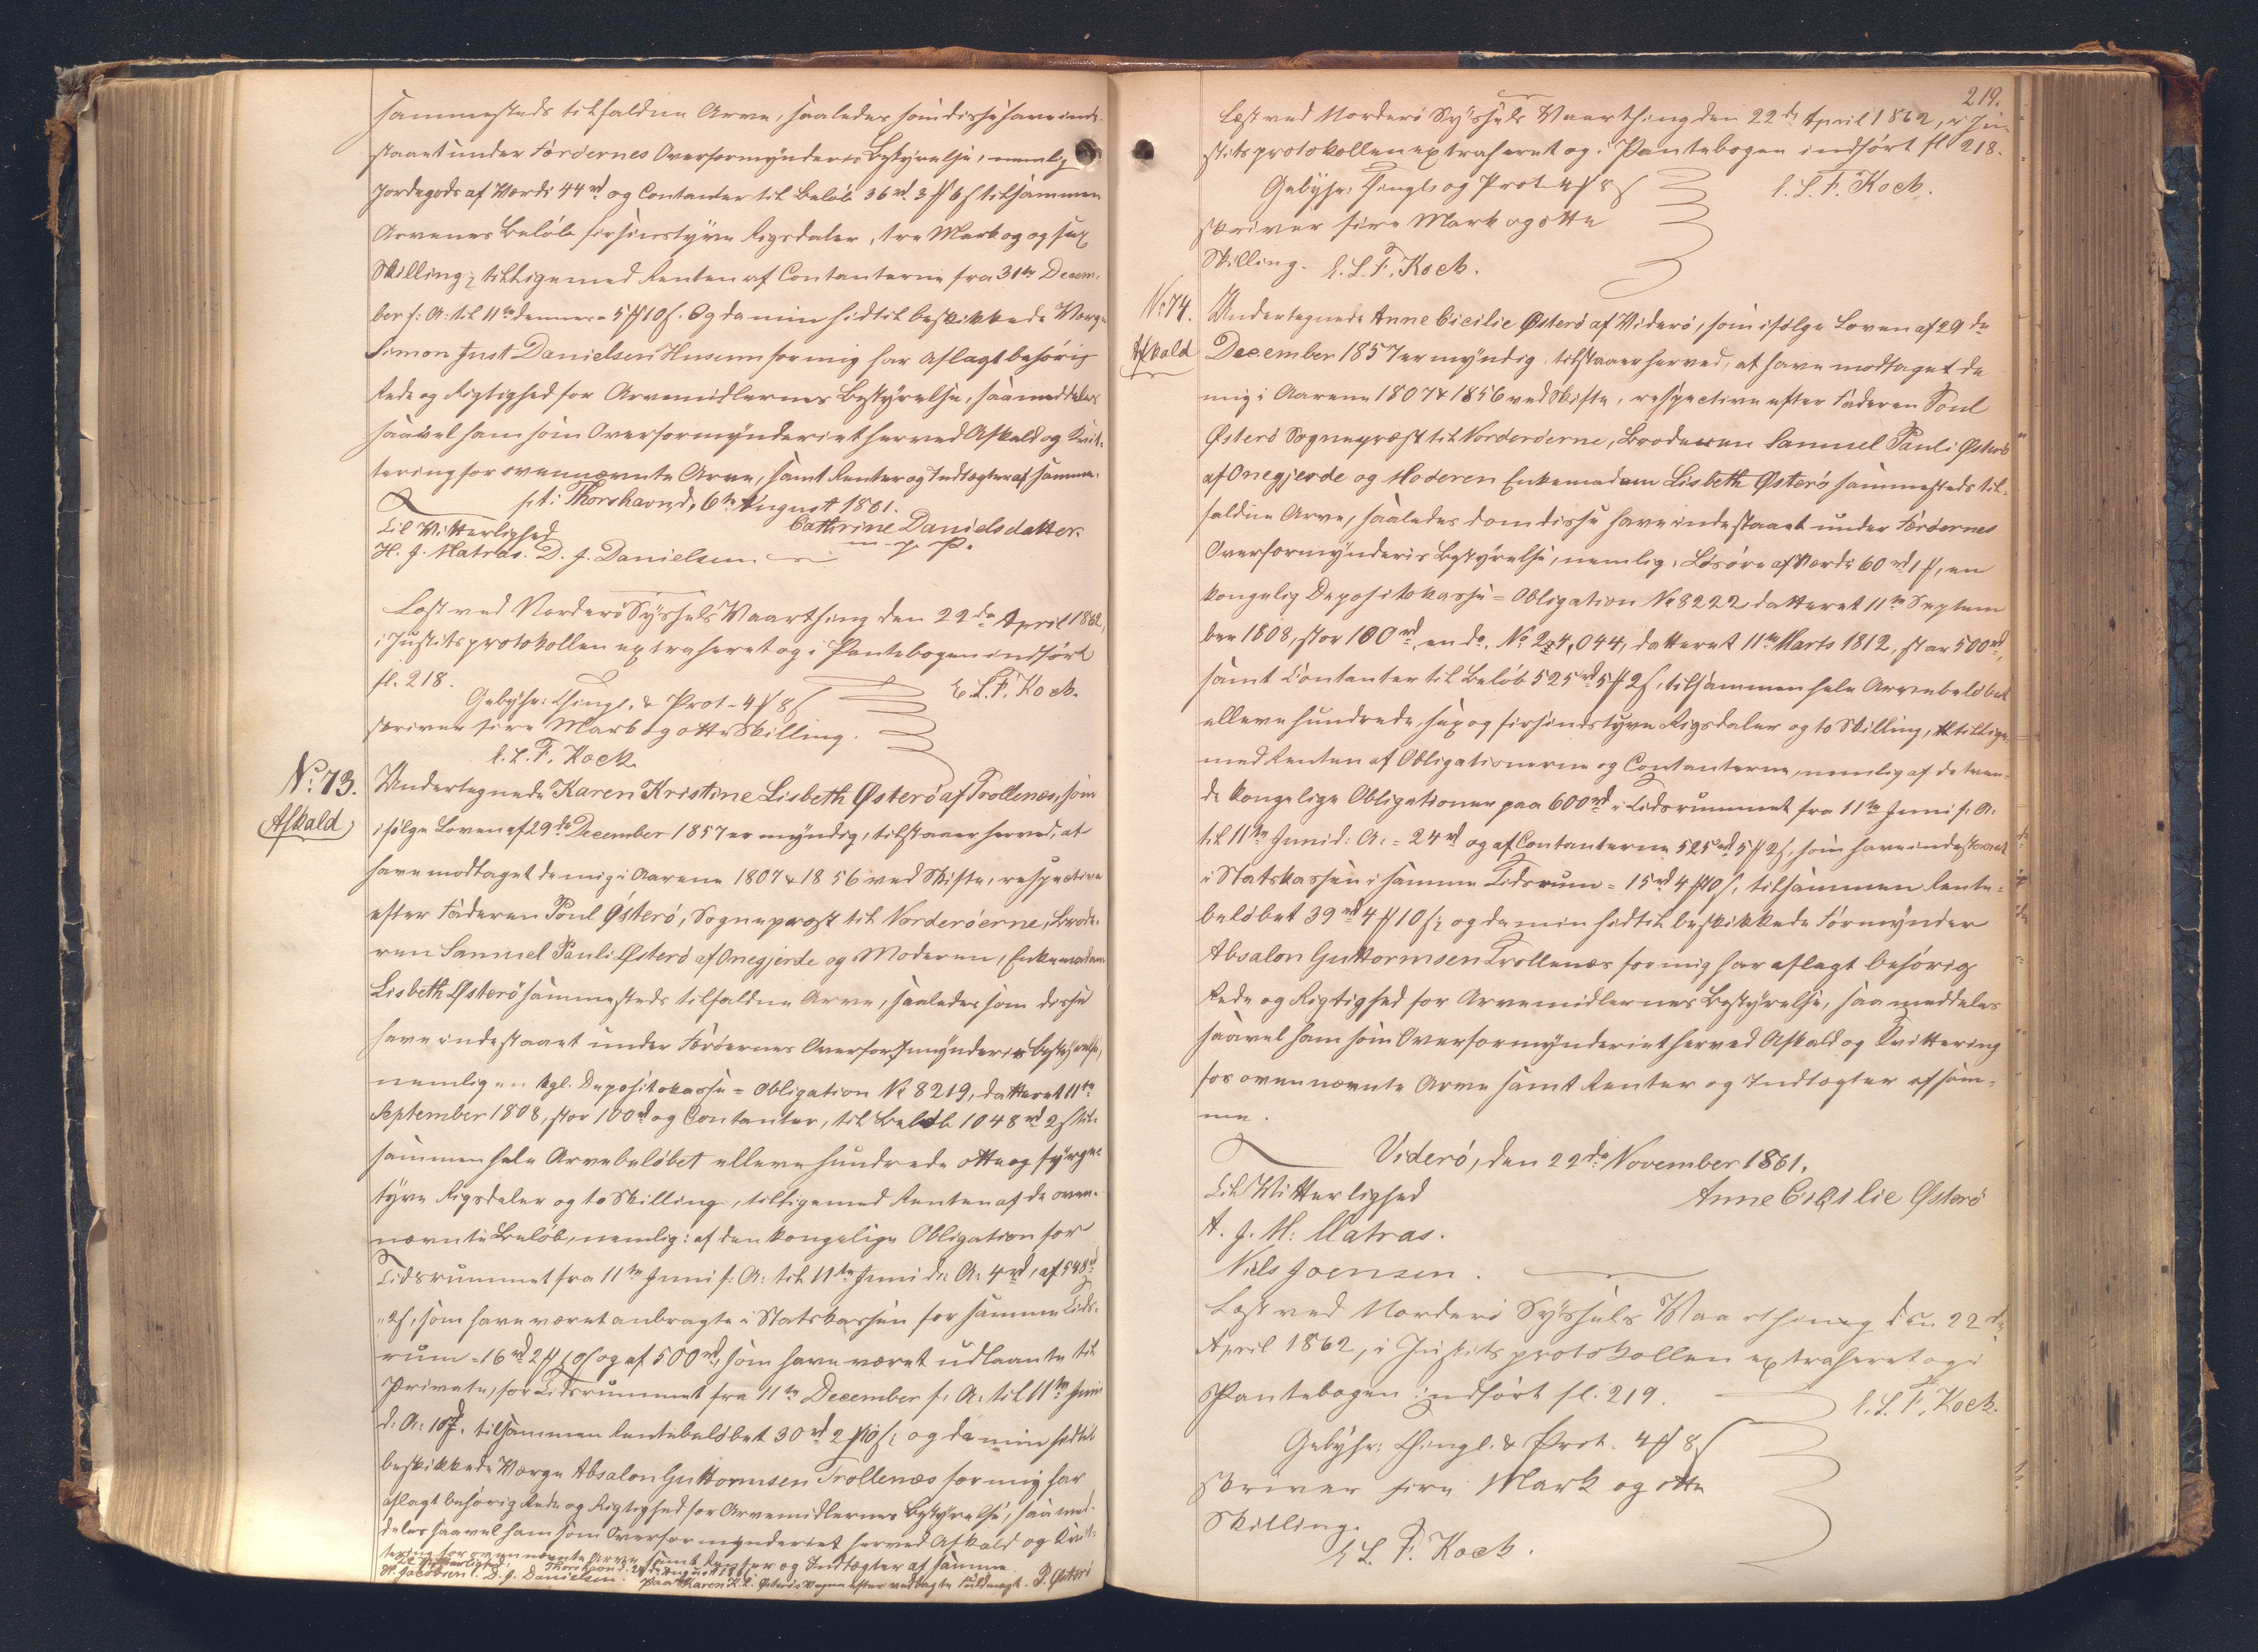 sammesteds tilfaldne Arve, saaledes som disse have inde-
staaet under Færøernes Overformynderies Bestyrelse, nemlig
Jordegods af Værdi 44 rd og Contanter til Beløb 36 rd. 3 ₰ 6 s tilsammen
Arvens Beløb firsindstyve Rigsdaler, tre Mark og og sex
Skilling; tilligemed Renten af Contanterne fra 31te Decem-
ber f: A: til 11te dennes = 5 ₰ 10 s. Og da min hidtil beskikkede Værge
Simon Just Danielsen Husum for mig har aflagt behørig
Rede og Rigtighed for Arvemidlernes Bestyrelse, saa meddeles
saavel ham som Overformynderiet herved Afkald og Kvit-
tering for ovennævnte Arve, samt Renter og Indtægter af samme.
p.t: Thorshavn, d. 6te August 1861.
Til Vitterlighed
Cathrine Danielsdatter
H. J. Matras. D. J. Danielsen
m. p. P.
Læst ved Norderø Syssels Vaarthing den 22de April 1862,
i Justitsprotokollen extraheret og i Pantebogen indført
fl. 218.
E. L. F. Koch.
Gebyhr: Thingl. & Prot. 4 ₰ 8 s
skriver fire Mark og otte Skilling.
E. L. F. Koch
No. 73.
Afkald
Undertegnede Karen Kristine Lisbeth Østerø af Trollenæs, som
ifølge Loven af 29de December 1857 er myndig, tilstaaer herved, at
have modtaget de mig i Aarene 1807 & 1856 ved Skifte, respective
efter Faderen Poul Østerø, Sognepræst til Norderøerne, Brode-
ren Samuel Pauli Østerø af Onegjerde og Moderen, Enkemadam
Lisbeth Østerø sammesteds tilfaldne Arve, saaledes som disse
have indestaaet under Færøernes Overformynderies Bestyrelse,
nemlig en kgl. Depositokasse = Obligation No 8219, datteret 11te
September 1808, stor 100 rd og Contanter, til Beløb 1048 rd 2 s til-
sammen hele Arvebeløbet elleve hundrede otte og fyrge-
tyve Rigsdaler og to Skilling, tilligemed Renten af de oven-
nævnte Beløb, nemlig: af den kongelige Obligation for
Tidsrummet fra 11te Juni f: A: til 11te Juni d: A: 4 rd, af 548 rd
" 2 s, som have været anbragte i Statskassen for samme Tids-
rum = 16 rd 2 ₰ 10 s og af 500 rd, som have været udlaante til
Private, for Tidsrummet fra 11te December f. A: til 11te Juni
d. A: 10 rd. tilsammen Rentebeløbet 30 rd 2 ₰ 10 s; og da min hidtil
beskikkede Værge Absalon Guttormsen Trollenæs for mig har
aflagt behørig Rede og Rigtighed for Arvemidlernes Bestyrelse, saa med-
deles saavel ham som Overformynderiet herved Afkald og Kvit-
tering for ovennævnte Arve samt Renter og Indtægter af samme.
Til Vitterlighed, Thorshavn d. August 1861.
H. Jacobsen. D. J. Danielsen. Paa Karen K. L. Østerøs Vegne efter vedlagte Fuldmagt. P. Østerø
219.
Læst ved Norderø Syssels Vaarthing den 22de April 1862, i Ju-
stitsprotokollen extraheret og i Pantebogen indført fl 218.
Gebyhr: Thingl. og Prot. 4 ₰ 8 s
E. L. F. Koch.
skriver fire Mark og otte
Skilling. E. L. F. Koch.
No. 74.
Afkald
Undertegnede Anne Cicilie Østerø af Viderø, som ifølge Loven af 29de
December 1857 er myndig, tilstaaer herved, at have modtaget de
mig i Aarene 1807 & 1856 ved Skifte, respective efter Faderen Poul
Østerø Sognepræst til Norderøerne, Broderen Samuel Pauli Østerø
af Onegjerde og Moderen Enkemadam Lisbeth Østerø sammesteds til-
faldne Arve, saaledes som disse have indestaaet under Færøernes
Overformynderies Bestyrelse, nemlig: Løsøre af Værdi 60 rd 1 ₰, en
kongelig Depositokasse = Obligation No 8222 datteret 11te Septem
ber 1808, stor 100 rd, en do. No 24,044, datteret 11te Marts 1812, stor 500 rd,
samt Contanter til Beløb 525 rd 5 ₰ 2 s, tilsammen hele Arvebeløbet
elleve hundrede, sex og firsindstyve Rigsdaler og to Skilling, tillige-
med Renten af Obligationerne og Contanterne, nemlig af de tven-
de kongelige Obligationer paa 600 rd i Tidsrummet fra 11te Juni f. A.
til 11te Juni d: A: = 24 rd og af Contanterne 525 rd 5 ₰ 2 s, som have indestaaet
i Statskassen i samme Tidsrum = 15 rd 4 ₰ 10 s, tilsammen Rente-
beløbet 39 rd 4 ₰ 10 s; og da min hidtil beskikkede Formynder
Absalon Guttormsen Trollenæs for mig har aflagt behørig
Rede og Rigtighed for Arvemidlernes Bestyrelse, saa meddeles
saavel ham som Overformynderiet herved Afkald og Kvittering
for ovennævnte Arve samt Renter og Indtægter af sam-
me.
Viderø, den 22de November 1861.
Til Vitterlighed
Anne Cicilie Østerø
A. J. M: Matras.
Niels Joensen.
Læst ved Norderø Syssels Vaarthing den 22de
April 1862, i Justitsprotokollen extraheret og i
Pantebogen indført fl. 219.
E. L. F. Koch.
Gebyhr: Thingl. & Prot. 4 ₰ 8 s
skriver fire Mark og otte
Skilling.
E. L. F. Koch.